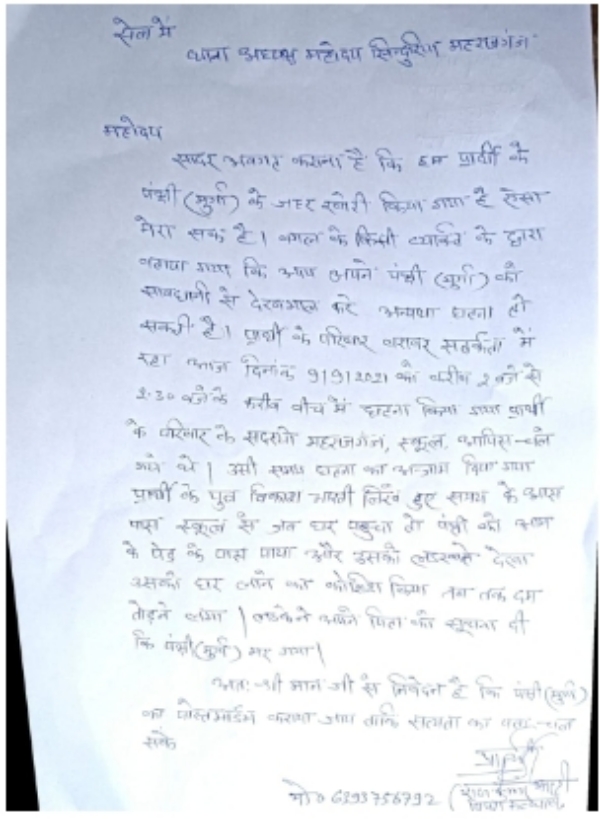 सेवा में
थाना अध्यक्ष महोदय सिन्दुरिया महराजगंज
महोदय
सादर अवगत कराना है कि हम प्रार्थी के
पंक्षी (मुर्गा) के जहर खोरी किया गया है ऐसा
मेरा सक है। बगल के किसी व्यक्ति के द्वारा
बताया गया कि आप अपने पंक्षी (मुर्गा) को
सावधानी से देखभाल करे अन्यथा घटना हो
सकती है। प्रार्थी के परिवार बराबर सतर्कता में
रहा आज दिनांक 9/9/2021 को करीब 2 बजे से
2:30 बजे के करीब बीच में घटना किया गया प्रार्थी
के परिवार के सदस्यो महराजगंज, स्कूल, आफिस चले
गये थे। उसी समय घटना का अन्जाम दिया गया
प्रार्थी के पुत्र विकास भारती लिखे हुए समय के आस
पास स्कूल से जब घर पहुचा तो पंक्षी को आम
के पेड़ के पास पाया और उसको लडखडाते देखा
उसको घर लाने का कोशिश किया तब तक दम
तोड़ने लगा। लडकेने अपने पिता को सूचना दी
कि पंक्षी (मुर्गा) मर गया।
अतः श्री मान जी से निवेदन है कि पंक्षी (मुर्गा)
का पोस्टमार्डम कराया जाय ताकि सत्यता का पता चल
सके
प्रार्थी
मो० 6393756792